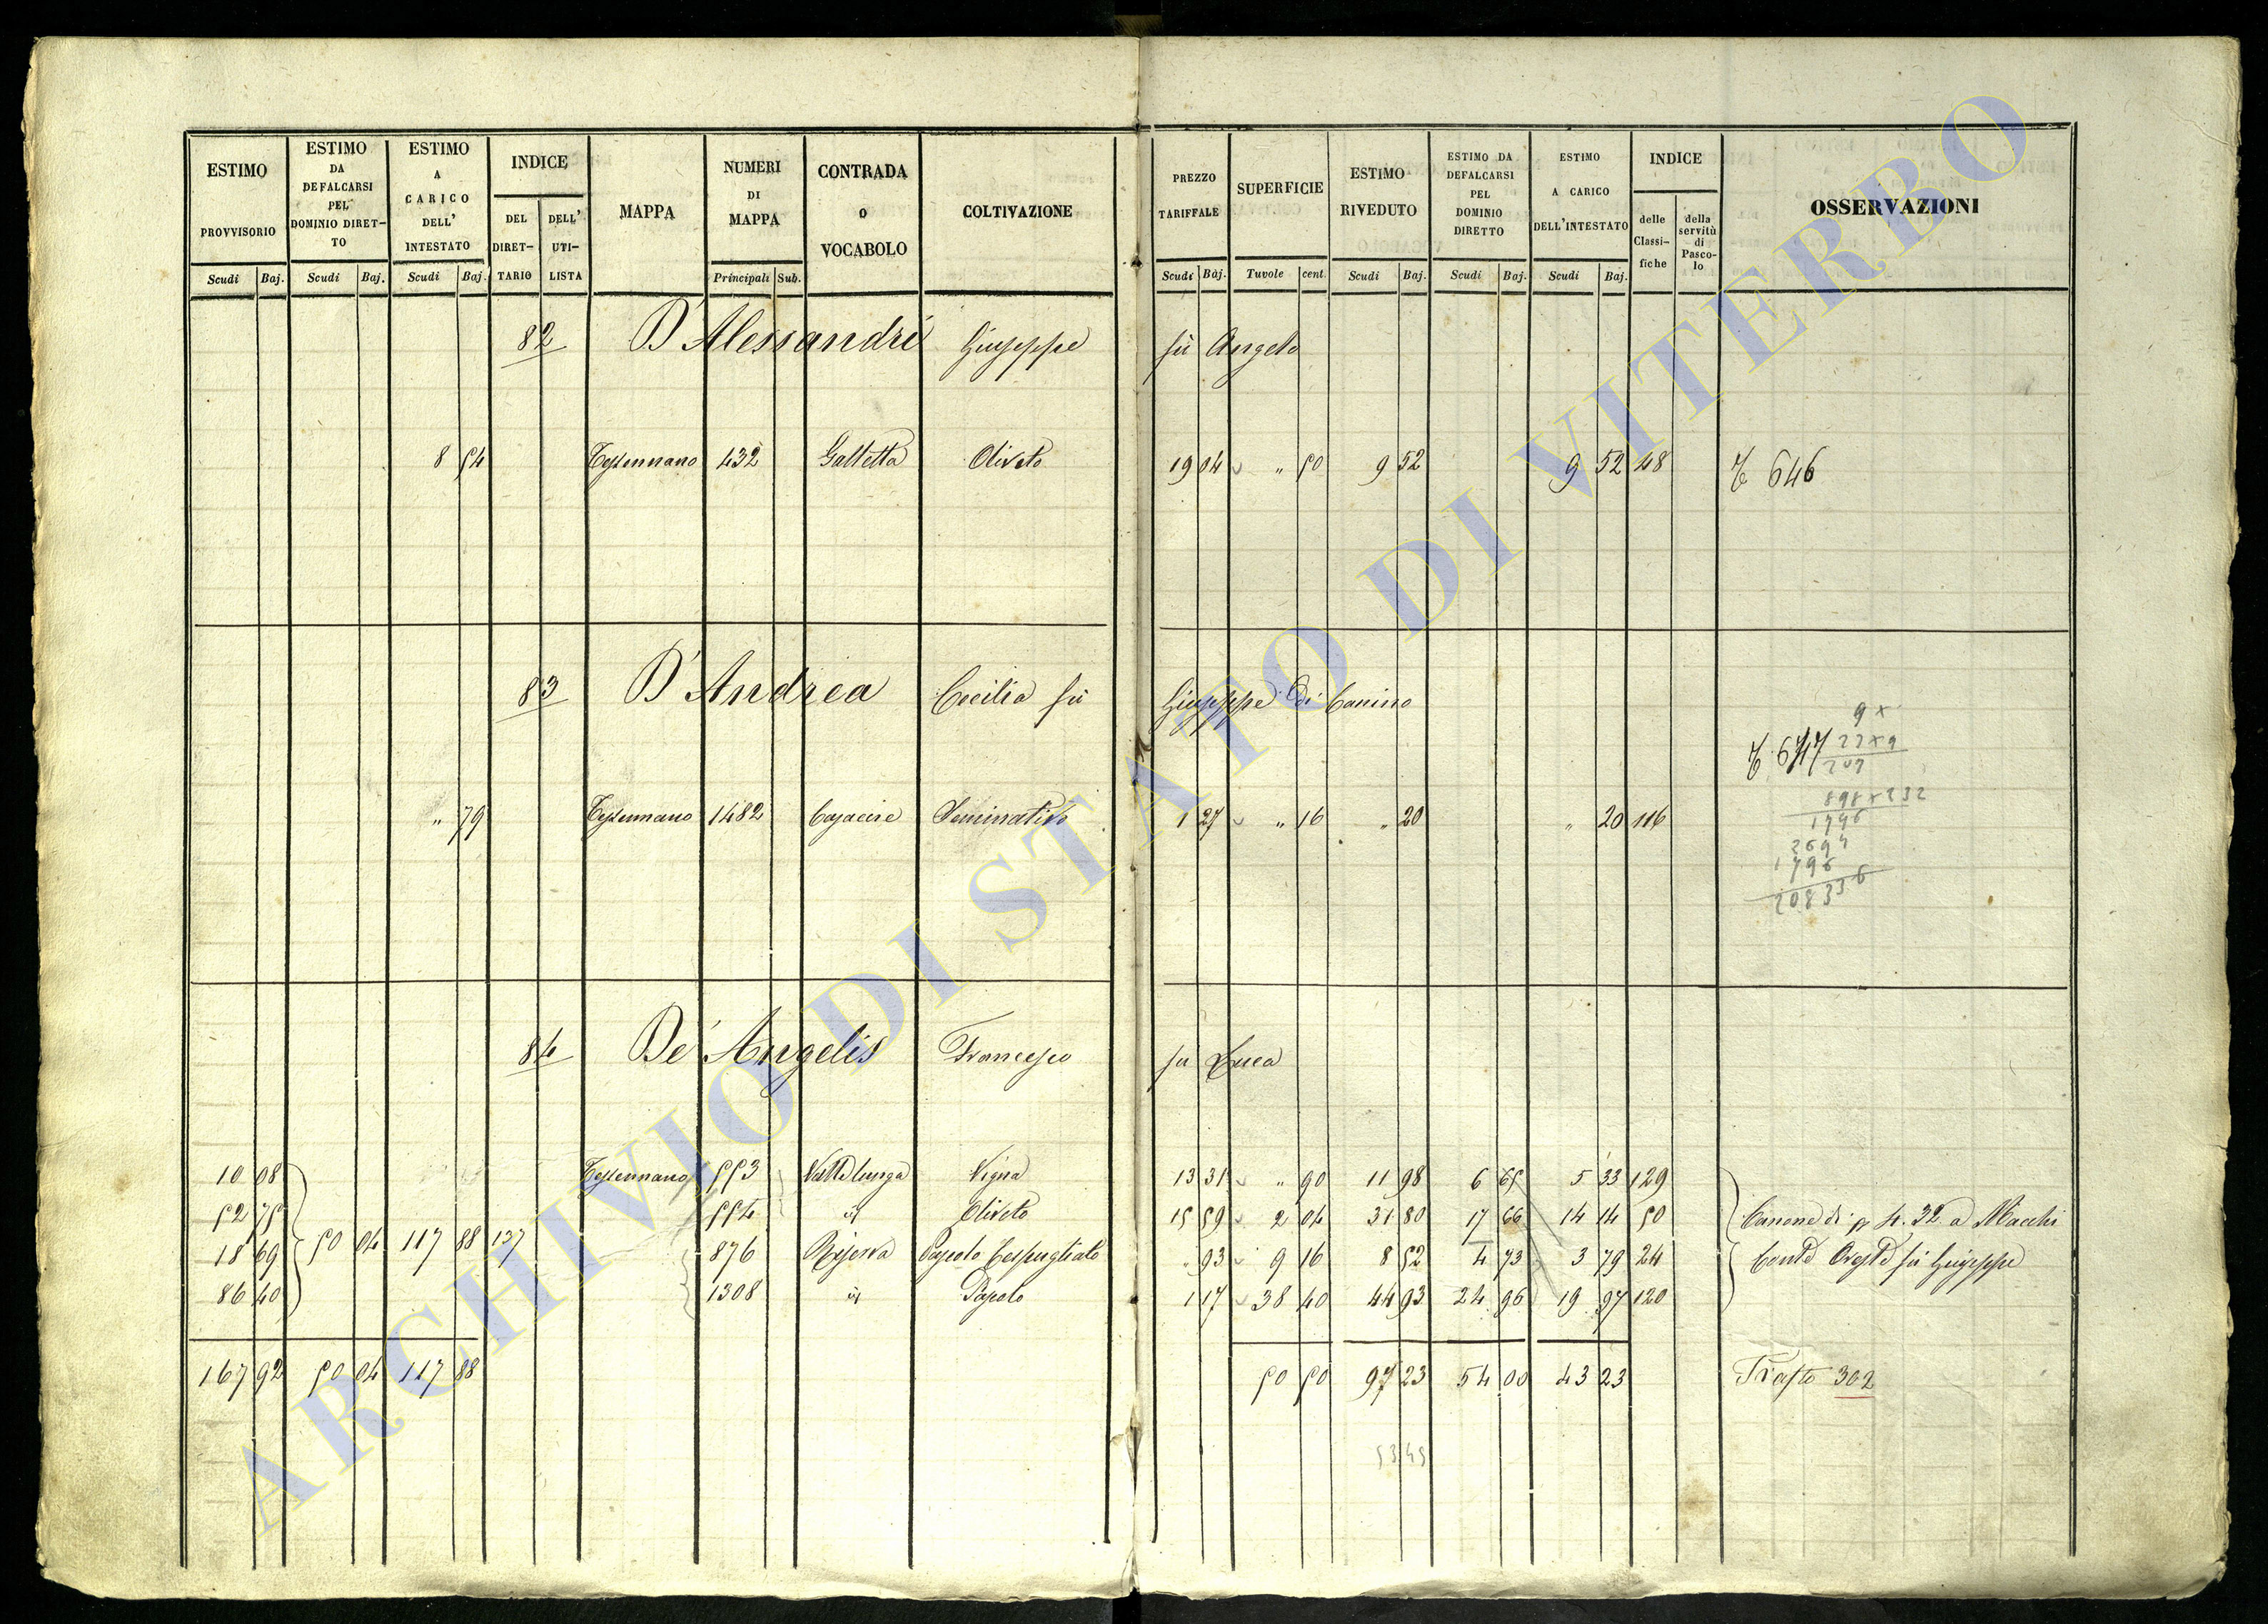 ESTIMO PROVVISORIO
ESTIMO DA DEFALCARSI PEL DOMINIO DIRET-TO
ESTIMO A CARICO DELL' INTESTATO
INDICE
DEL DIRET-TARIO
DELL' UTI-LISTA
MAPPA
NUMERI DI MAPPA
CONTRADA O VOCABOLO
COLTIVAZIONE
PREZZO TARIFFALE
SUPERFICIE
ESTIMO RIVEDUTO
ESTIMO DA DEFALCARSI PEL DOMINIO DIRETTO
ESTIMO A CARICO DELL'INTESTATO
INDICE
delle Classi-fiche
della servitù di Pasco-lo
OSSERVAZIONI
Scudi Baj. Scudi Baj. Scudi Baj. Principali Sub. Scudi Baj. Tavole cent. Scudi Baj. Scudi Baj. Scudi Baj.
82 D'Alessandri Giuseppe fù Angelo
8 54 Tessennano 432 Oliveto 19 04 " 50 9 52 9 52 48 646
83 D'Andrea Cecilia fù Giuseppe di Canino
9 x
647 23 x 9
207
" 79 Tessennano 1482 Seminativo 1 27 " 16 " 20 " 20 116
898 x 232
1796
2694
1796
208336
84 De Angelis Francesco fu Luca
10 08 Tessennano 553 Valle lunga Vigna 13 31 " 90 11 98 6 65 5 33 129
52 75 554 id Oliveto 15 59 2 04 31 80 17 66 14 14 50 Canone di 4. 32 a Macchi
18 69 50 04 117 88 137 876 Riserva Pascolo Cespugliato " 93 9 16 8 52 4 73 3 79 24 Conte Oreste fù Giuseppe
86 40 1308 id Pascolo 1 17 38 40 44 93 24 96 19 97 120
167 92 50 04 117 88 50 50 97 23 54 00 43 23 Trasto 302
53 45
ARCHIVIO DI STATO DI VITERBO